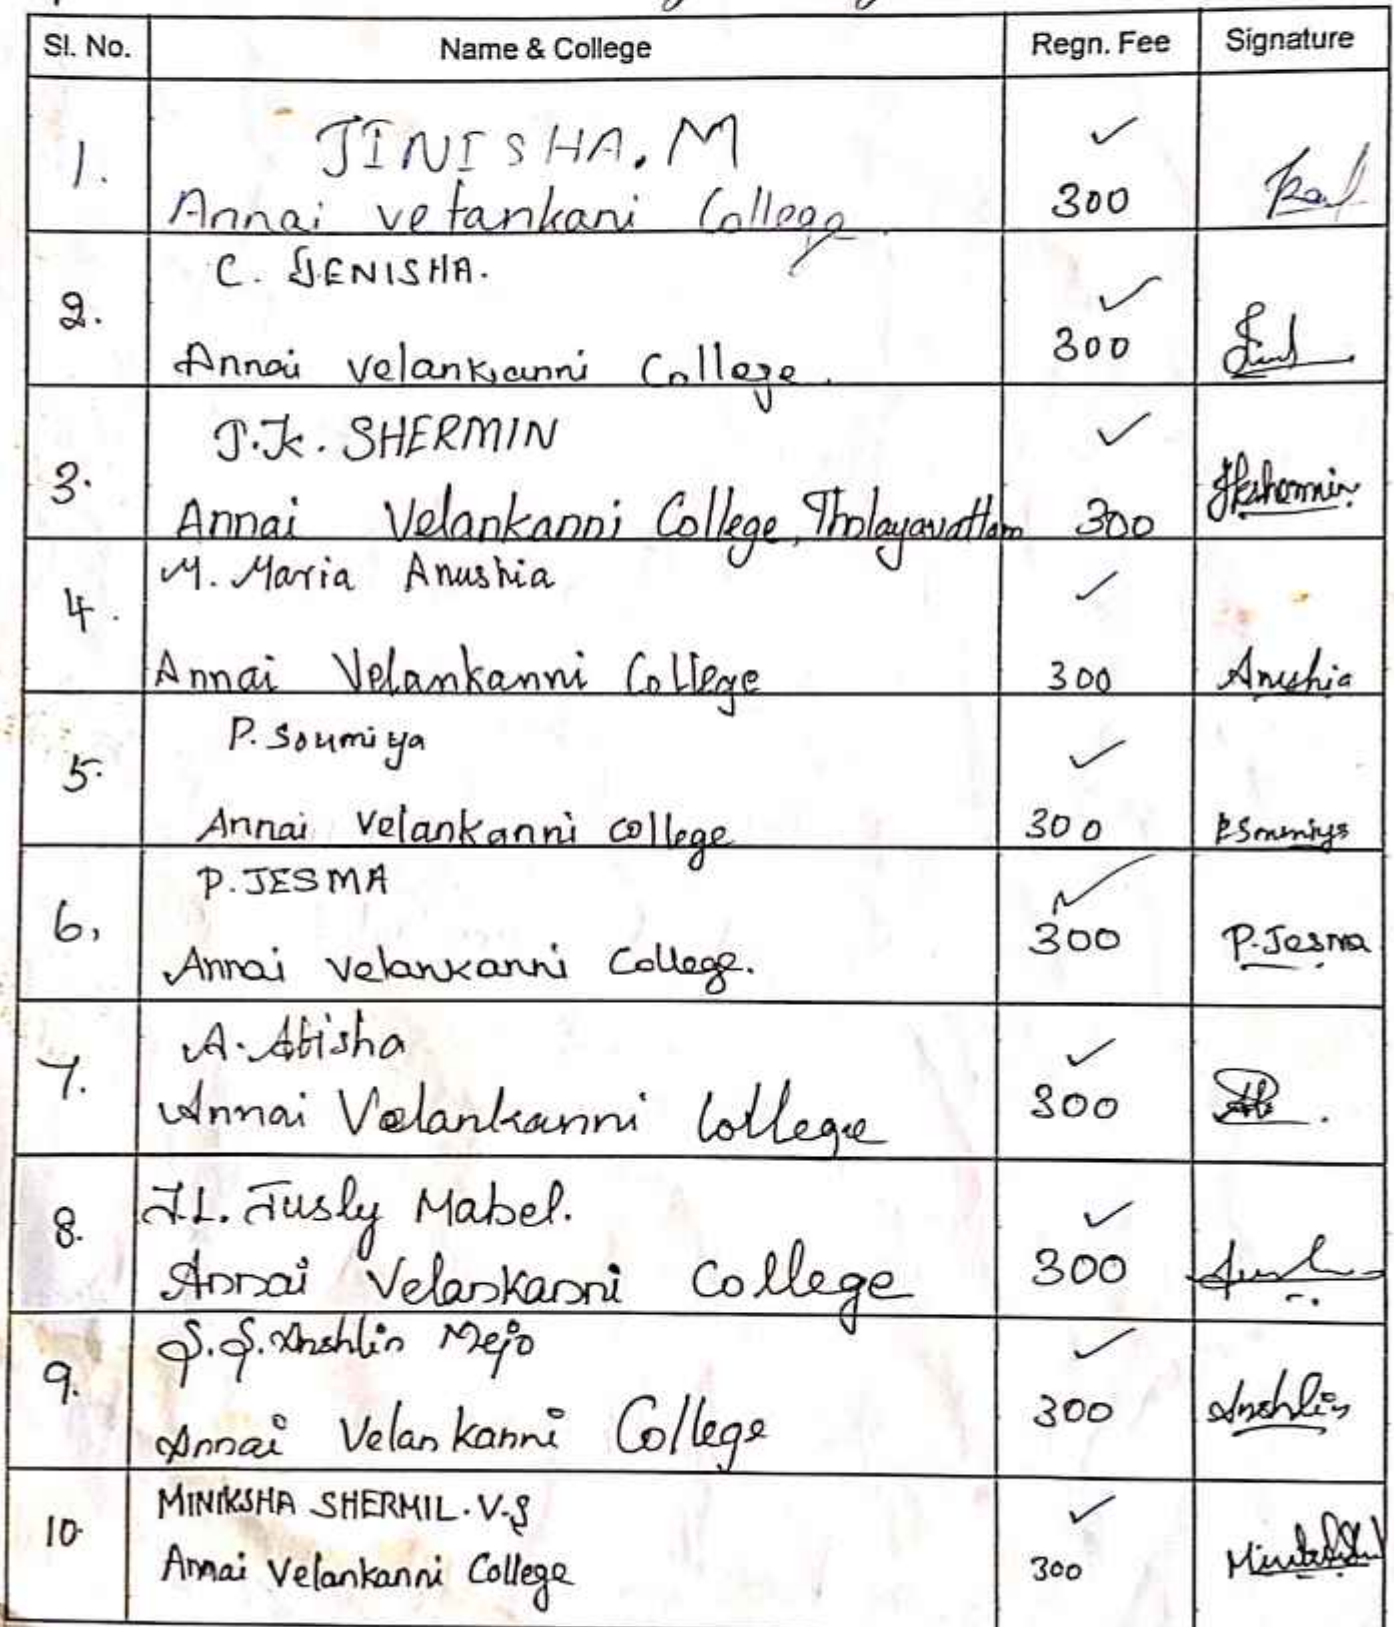 Sl. No. Name & College Regn. Fee Signature
1. JINISHA. M ✓
Annai vetankani College. 300
2. C. JENISHA. ✓
Annai Velankanni College. 300
3. J.K. SHERMIN ✓
Annai Velankanni College, Tholayavattam 300 JKshermin
4. M. Maria Anushia ✓
Annai Velankanni College 300 Anushia
5. P. Soumiya ✓
Annai Velankanni College 300 P Soumiya
6, P. JESMA ✓
Annai Velankanni College. 300 P. Jesma
7. A. Abisha ✓
Annai Velankanni College 300
8. J.L. Jusly Mabel. ✓
Annai Velankanni College 300
9. S. S. Anshlin Mejo ✓
Annai Velankanni College 300 Anshlin
10. MINIKSHA SHERMIL. V.S ✓
Annai Velankanni College 300